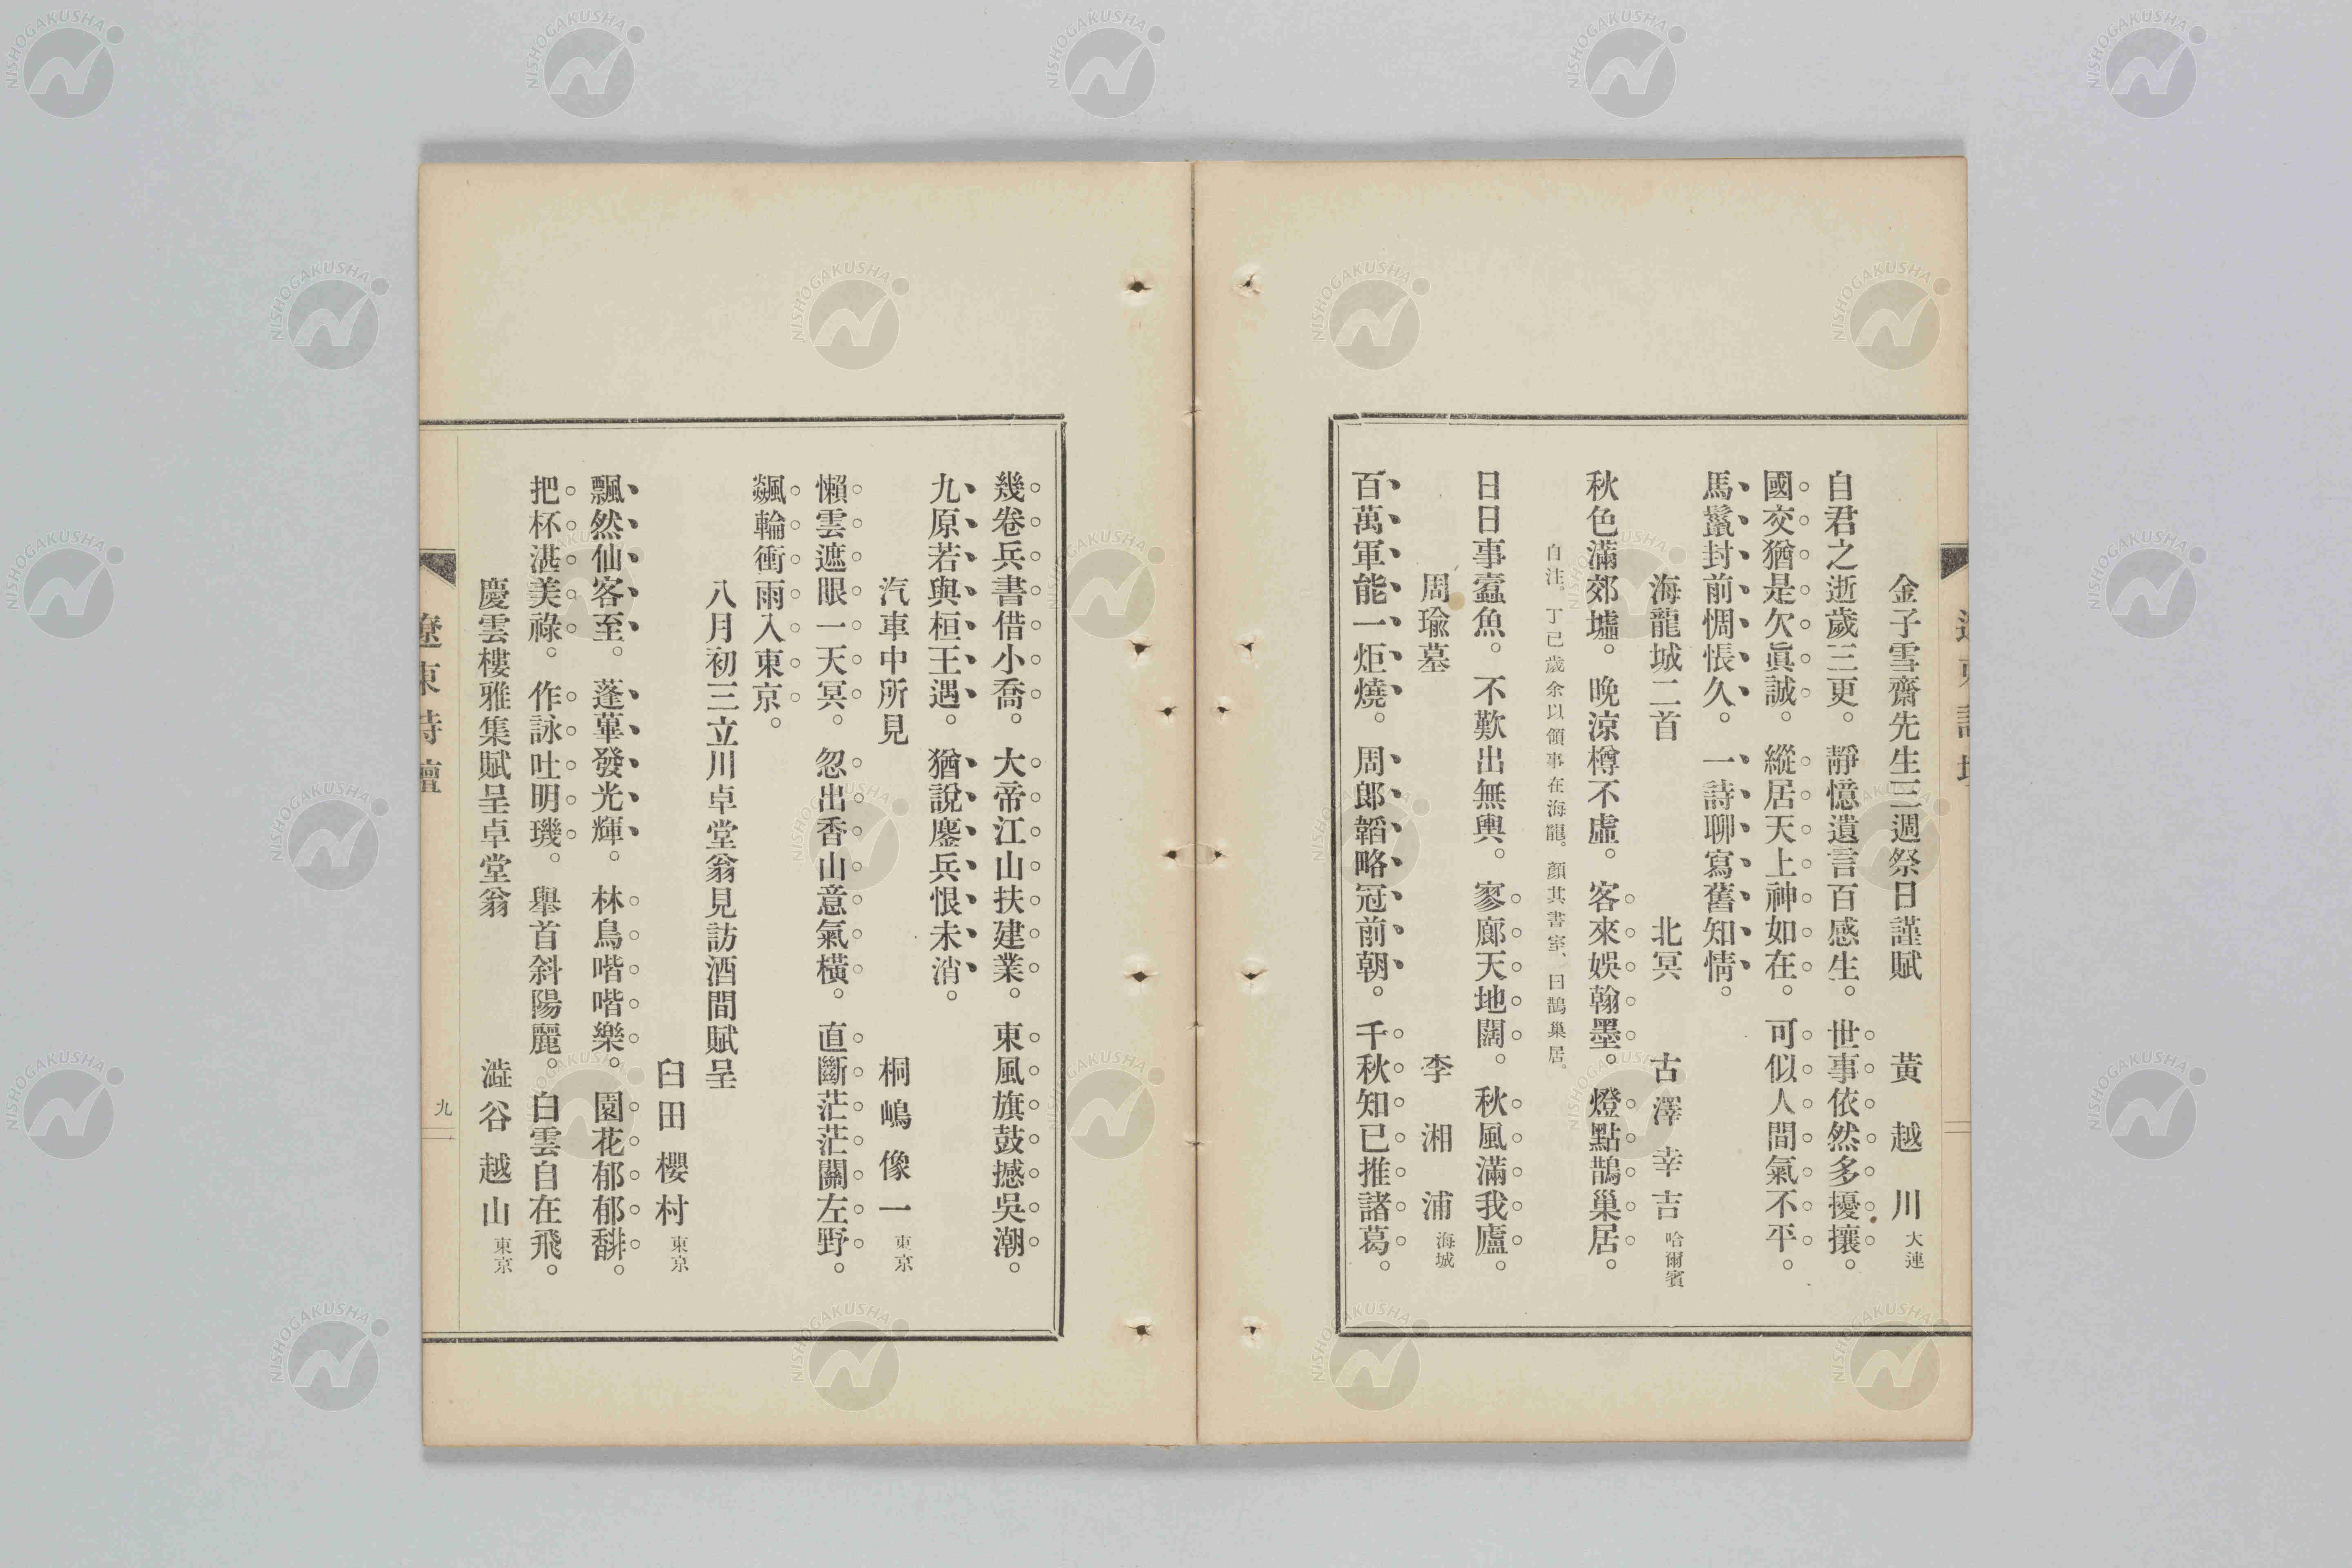 金子雪齋先生三週祭日謹賦 黃越川 大連
自君之逝歲三更。靜憶遺言百感生。世事依然多擾攘。
國交猶是欠眞誠。縱居天上神如在。可似人間氣不平。
馬鬣封前惆悵久。一詩聊寫舊知情。
海龍城二首 北冥 古澤幸吉 哈爾賓
秋色滿郊墟。晚涼樽不虛。客來娛翰墨。燈點鵲巢居。
自注。丁已歲余以領事在海龍。顏其書室、曰鵲巢居。
日日事蠧魚。不歎出無輿。寥廊天地闊。秋風滿我廬。
周瑜墓 李湘浦 海城
百萬軍能一炬燒。周郞韜略冠前朝。千秋知已推諸葛。
幾卷兵書借小喬。大帝江山扶建業。東風旗鼓撼吳潮。
九原若與桓王遇。猶說鏖兵恨未消。
汽車中所見 桐嶋像一 東京
懶雲遮眼一天冥。忽出香山意氣橫。直斷茫茫關左野。
飆輪衝雨入東京。
八月初三立川卓堂翁見訪酒間賦呈
臼田櫻村 東京
飄然仙客至。蓬蓽發光輝。林鳥喈喈樂。園花郁郁馡。
把杯湛美祿。作詠吐明璣。舉首斜陽麗。白雲自在飛。
慶雲樓雅集賦呈卓堂翁 澁谷越山 東京
遼東詩壇
九
NISHOGAKUSHA